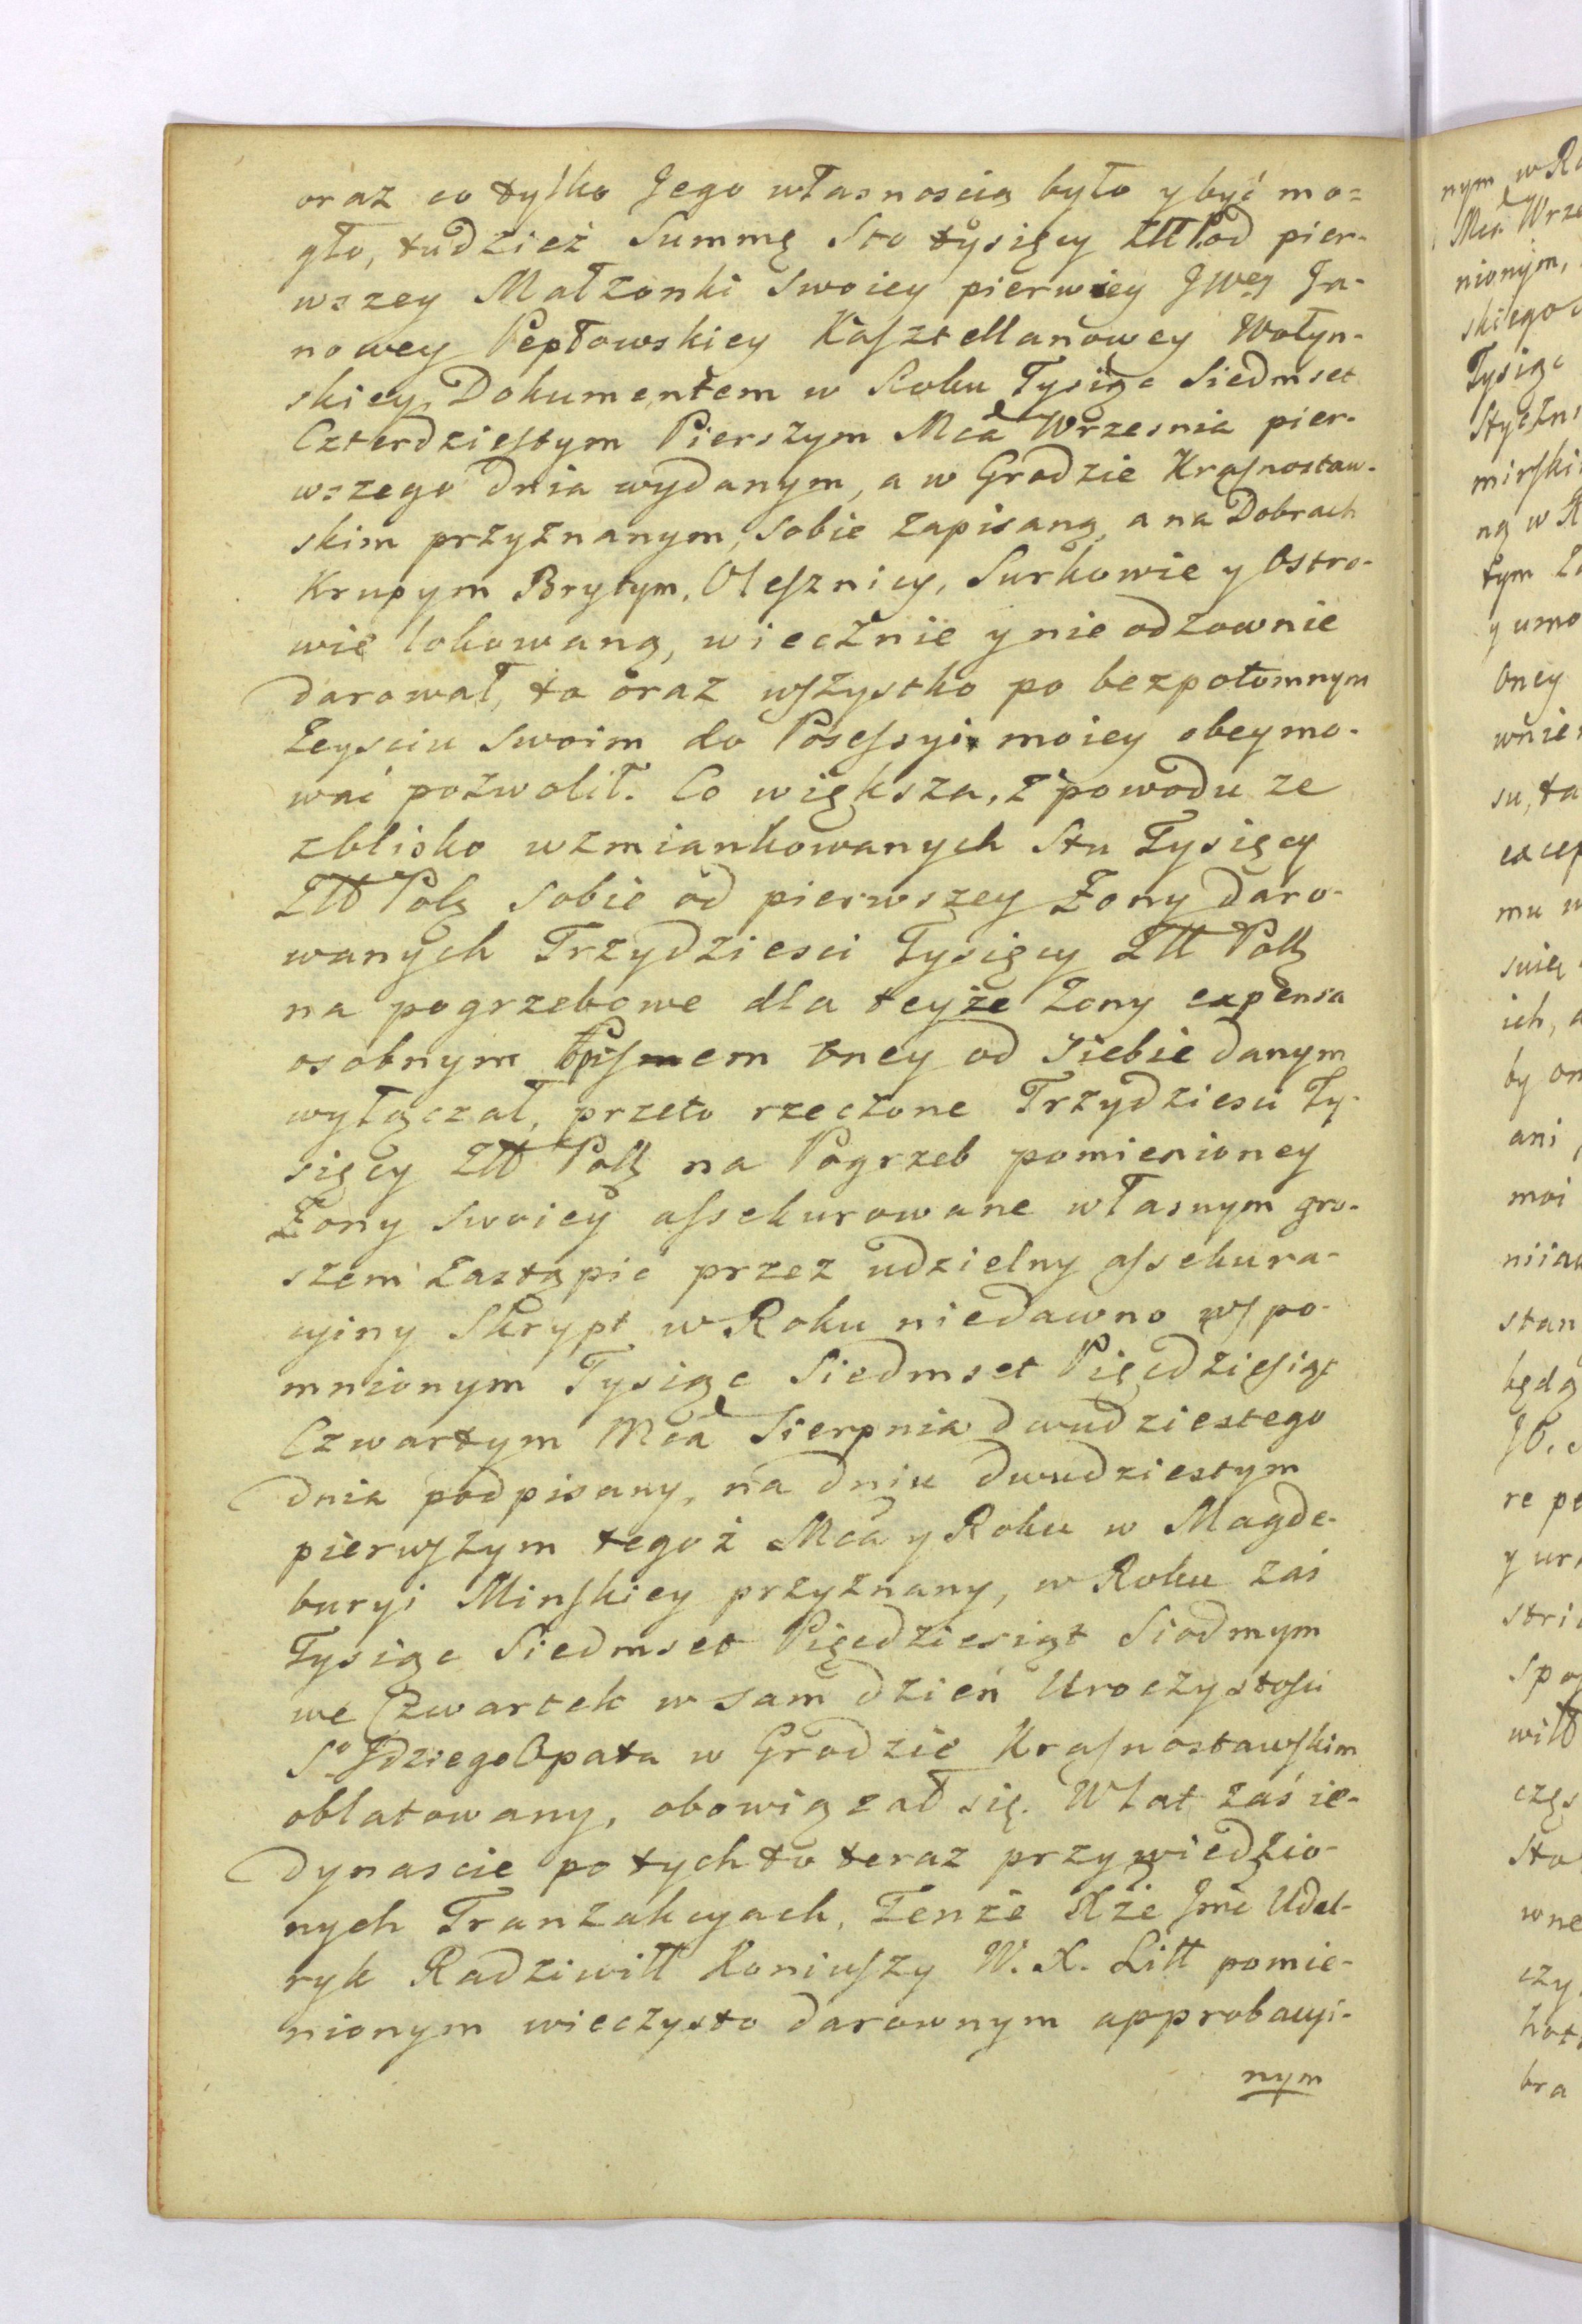 oraz co tylko Jego własnoscią było y być mo=
gło, tudzież Summę Sto tysięcy Złł P. od pier-
wszey Małzonki Swoiey pierwiey JWey Ja-
nowey Pepłowskiey Kasztellanowey Wołyn-
skiey, Dokumentem w Roku Tysiąc Siedmset
Czterdziestym Pierszym Mca Wrzesnia pier-
wszego dnia wydanym, a w Grodzie Krasnostaw-
skim przyznanym, Sobie zapisaną, a na Dobrach
Krupym Brytym, Olesznicy, Surhowie y Ostro-
wie lokowaną, wiecznie y nie odzownie
darował, to oraz wszystko po bezpotomnym
Zeysciu Swoim do Posessyi moiey obeymo-
wać pozwolił. Co większa, z powodu ze
zblisko wzmiankowanych Stu Tysięcy
Złł Polg Sobie od pierwszey Zony daro-
wanych Trzydziesci Tysięcy Złł Pollg
na pogrzebowe dla teyże Zony expensa
osobnym Pismem oney od Siebie danym
wyłączał, przeto rzeczone Trzydziesci Ty-
sięcy Złł Pollg na Pogrzeb pomienioney
Zony Swoiey assekurowane własnym gro-
szem Zastąpić przez udzielny assekura-
cyiny Skrypt w Roku niedawno wspo-
mnionym Tysiąc Siedmset Pięćdziesiąt
Czwartym Mca Sierpnia dwudziestego
dnia podpisany, na dniu dwudziestym
pierwszym tegoż Mca y Roku w Magde-
buryi Minskiey przyznany, w Roku zaś
Tysiąc Siedmset Pięćdziesiąt Siodmym
we Czwartek w sam dzień Uroczystosci
So Jdziego Opata w Grodzie Krasnostawskim
oblatowany, obowiązał się. W lat zaś ie-
dynascie po tych to teraz przywiedzio-
nych Tranzakcyach, Tenże Xże Jmć Udal-
ryk Radziwiłł Koniuszy W. X. Litt pomie-
nionym wieczysto darownym approbacyi-
nym